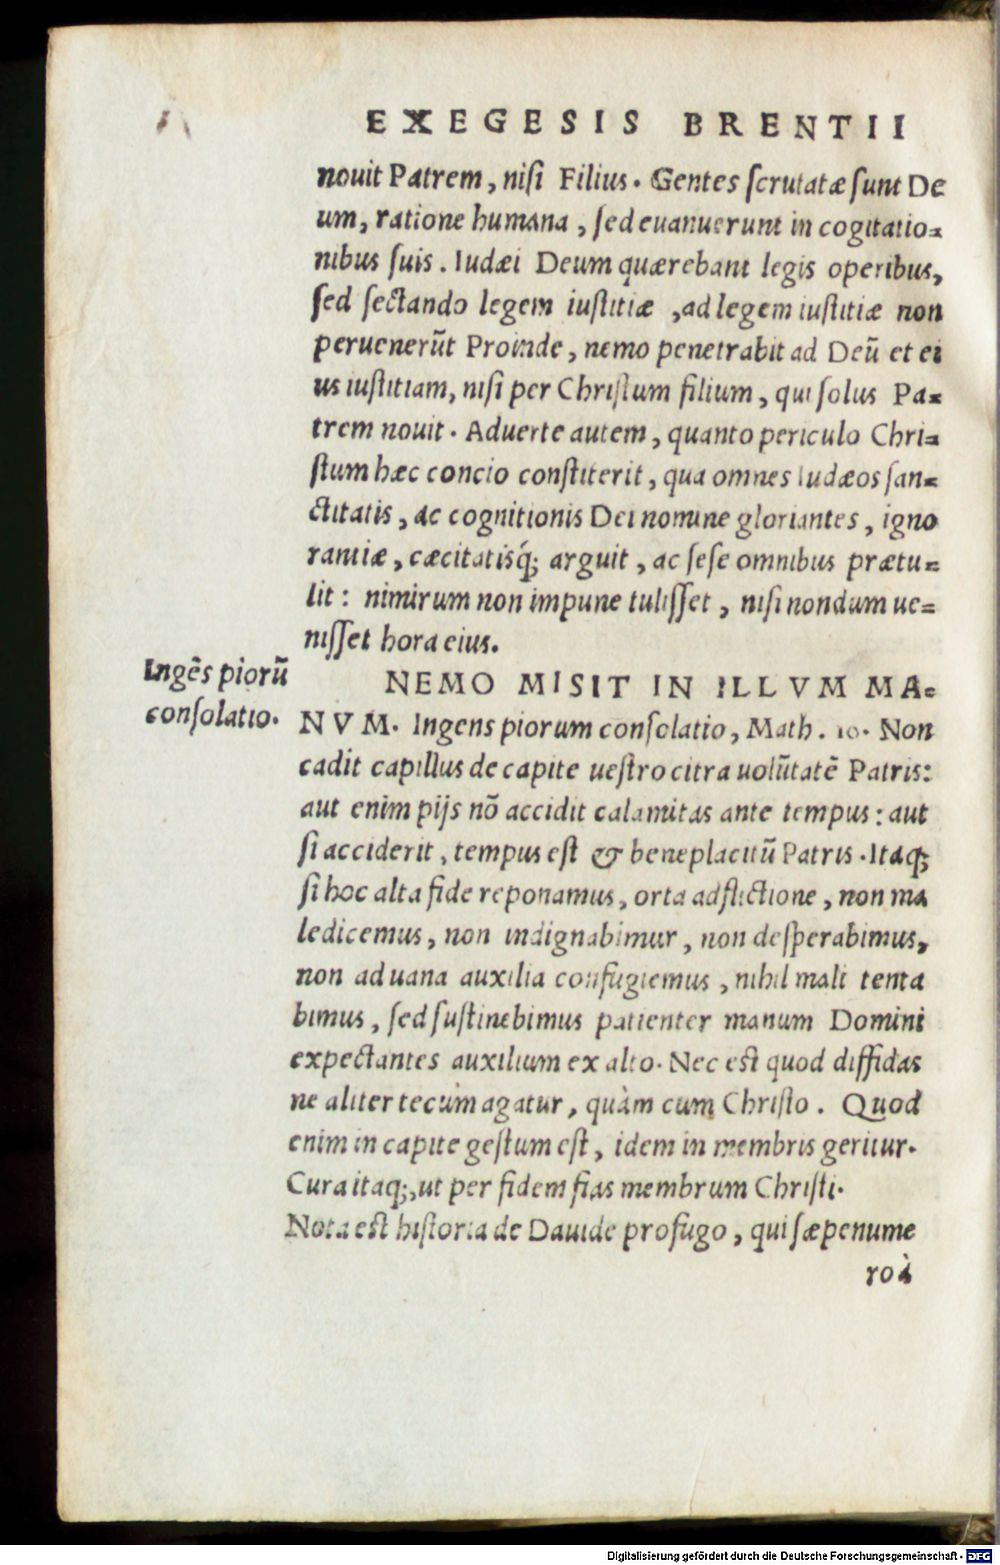 EXEGESIS BRENTII
nouit Patrem, nisi Filius. Gentes scrutatæ sunt De
um, ratione humana, sed euanuerunt in cogitatio-
nibus suis. Iudæi Deum quærebant legis operibus,
sed sectando legem iustitiæ, ad legem iustitiæ non
peruenerūt Proinde, nemo penetrabit ad Deū et ei
us iustitiam, nisi per Christum filium, qui solus Pa-
trem nouit. Aduerte autem, quanto periculo Chri-
stum hæc concio constiterit, qua omnes Iudæos san-
ctitatis, ac cognitionis Dei nomine gloriantes, igno
rantiæ, cæcitatisq́; arguit, ac sese omnibus prætu-
lit: nimirum non impune tulisset, nisi nondum ue-
nisset hora eius.
Ingēs piorū
consolatio.
NEMO MISIT IN ILLVM MA-
NVM. Ingens piorum consolatio, Math. 10. Non
cadit capillus de capite uestro citra uolūtatē Patris:
aut enim pijs nō accidit calamitas ante tempus: aut
si acciderit, tempus est & beneplacitū Patris. Itaq;
si hoc alta fide reponamus, orta adflictione, non ma
ledicemus, non indignabimur, non desperabimus,
non ad uana auxilia confugiemus, nihil mali tenta
bimus, sed sustinebimus patienter manum Domini
expectantes auxilium ex alto. Nec est quod diffidas
ne aliter tecùm agatur, quàm cum Christo. Quod
enim in capite gestum est, idem in membris geritur.
Cura itaq;, ut per fidem fias membrum Christi.
Nota est historia de Dauide profugo, qui sæpenume
ro à
Digitalisierung gefördert durch die Deutsche Forschungsgemeinschaft - DFG